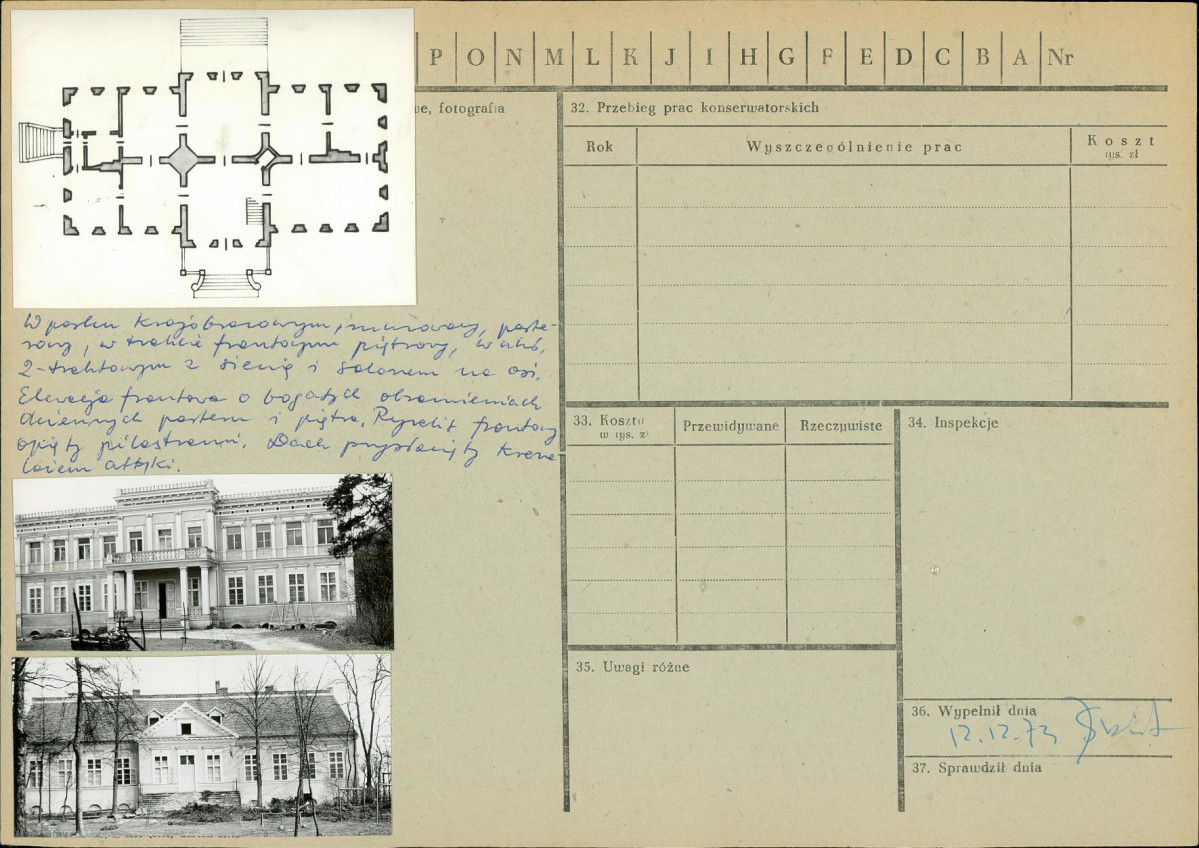 P O N M L K J I H G F E D C B A Nr
we, fotografia
32. Przebieg prac konserwatorskich
Rok
Wyszczególnienie prac
Koszt
tys. zł
W parku krajobrazowym, murowany, parte-
rowy, w trakcie frontowym piętrowy, w
2-traktowym z sienią i salonem na osi.
Elewacja frontowa o bogatych obramieniach
okiennych parteru i piętra. Ryzalit frontowy
opięty pilastrami. Dach przysłonięty krene
lażem attyki.
33. Koszty
w tys. zł
Przewidywane
Rzeczywiste
34. Inspekcje
35. Uwagi różne
36. Wypełnił dnia
12.12.73
37. Sprawdził dnia